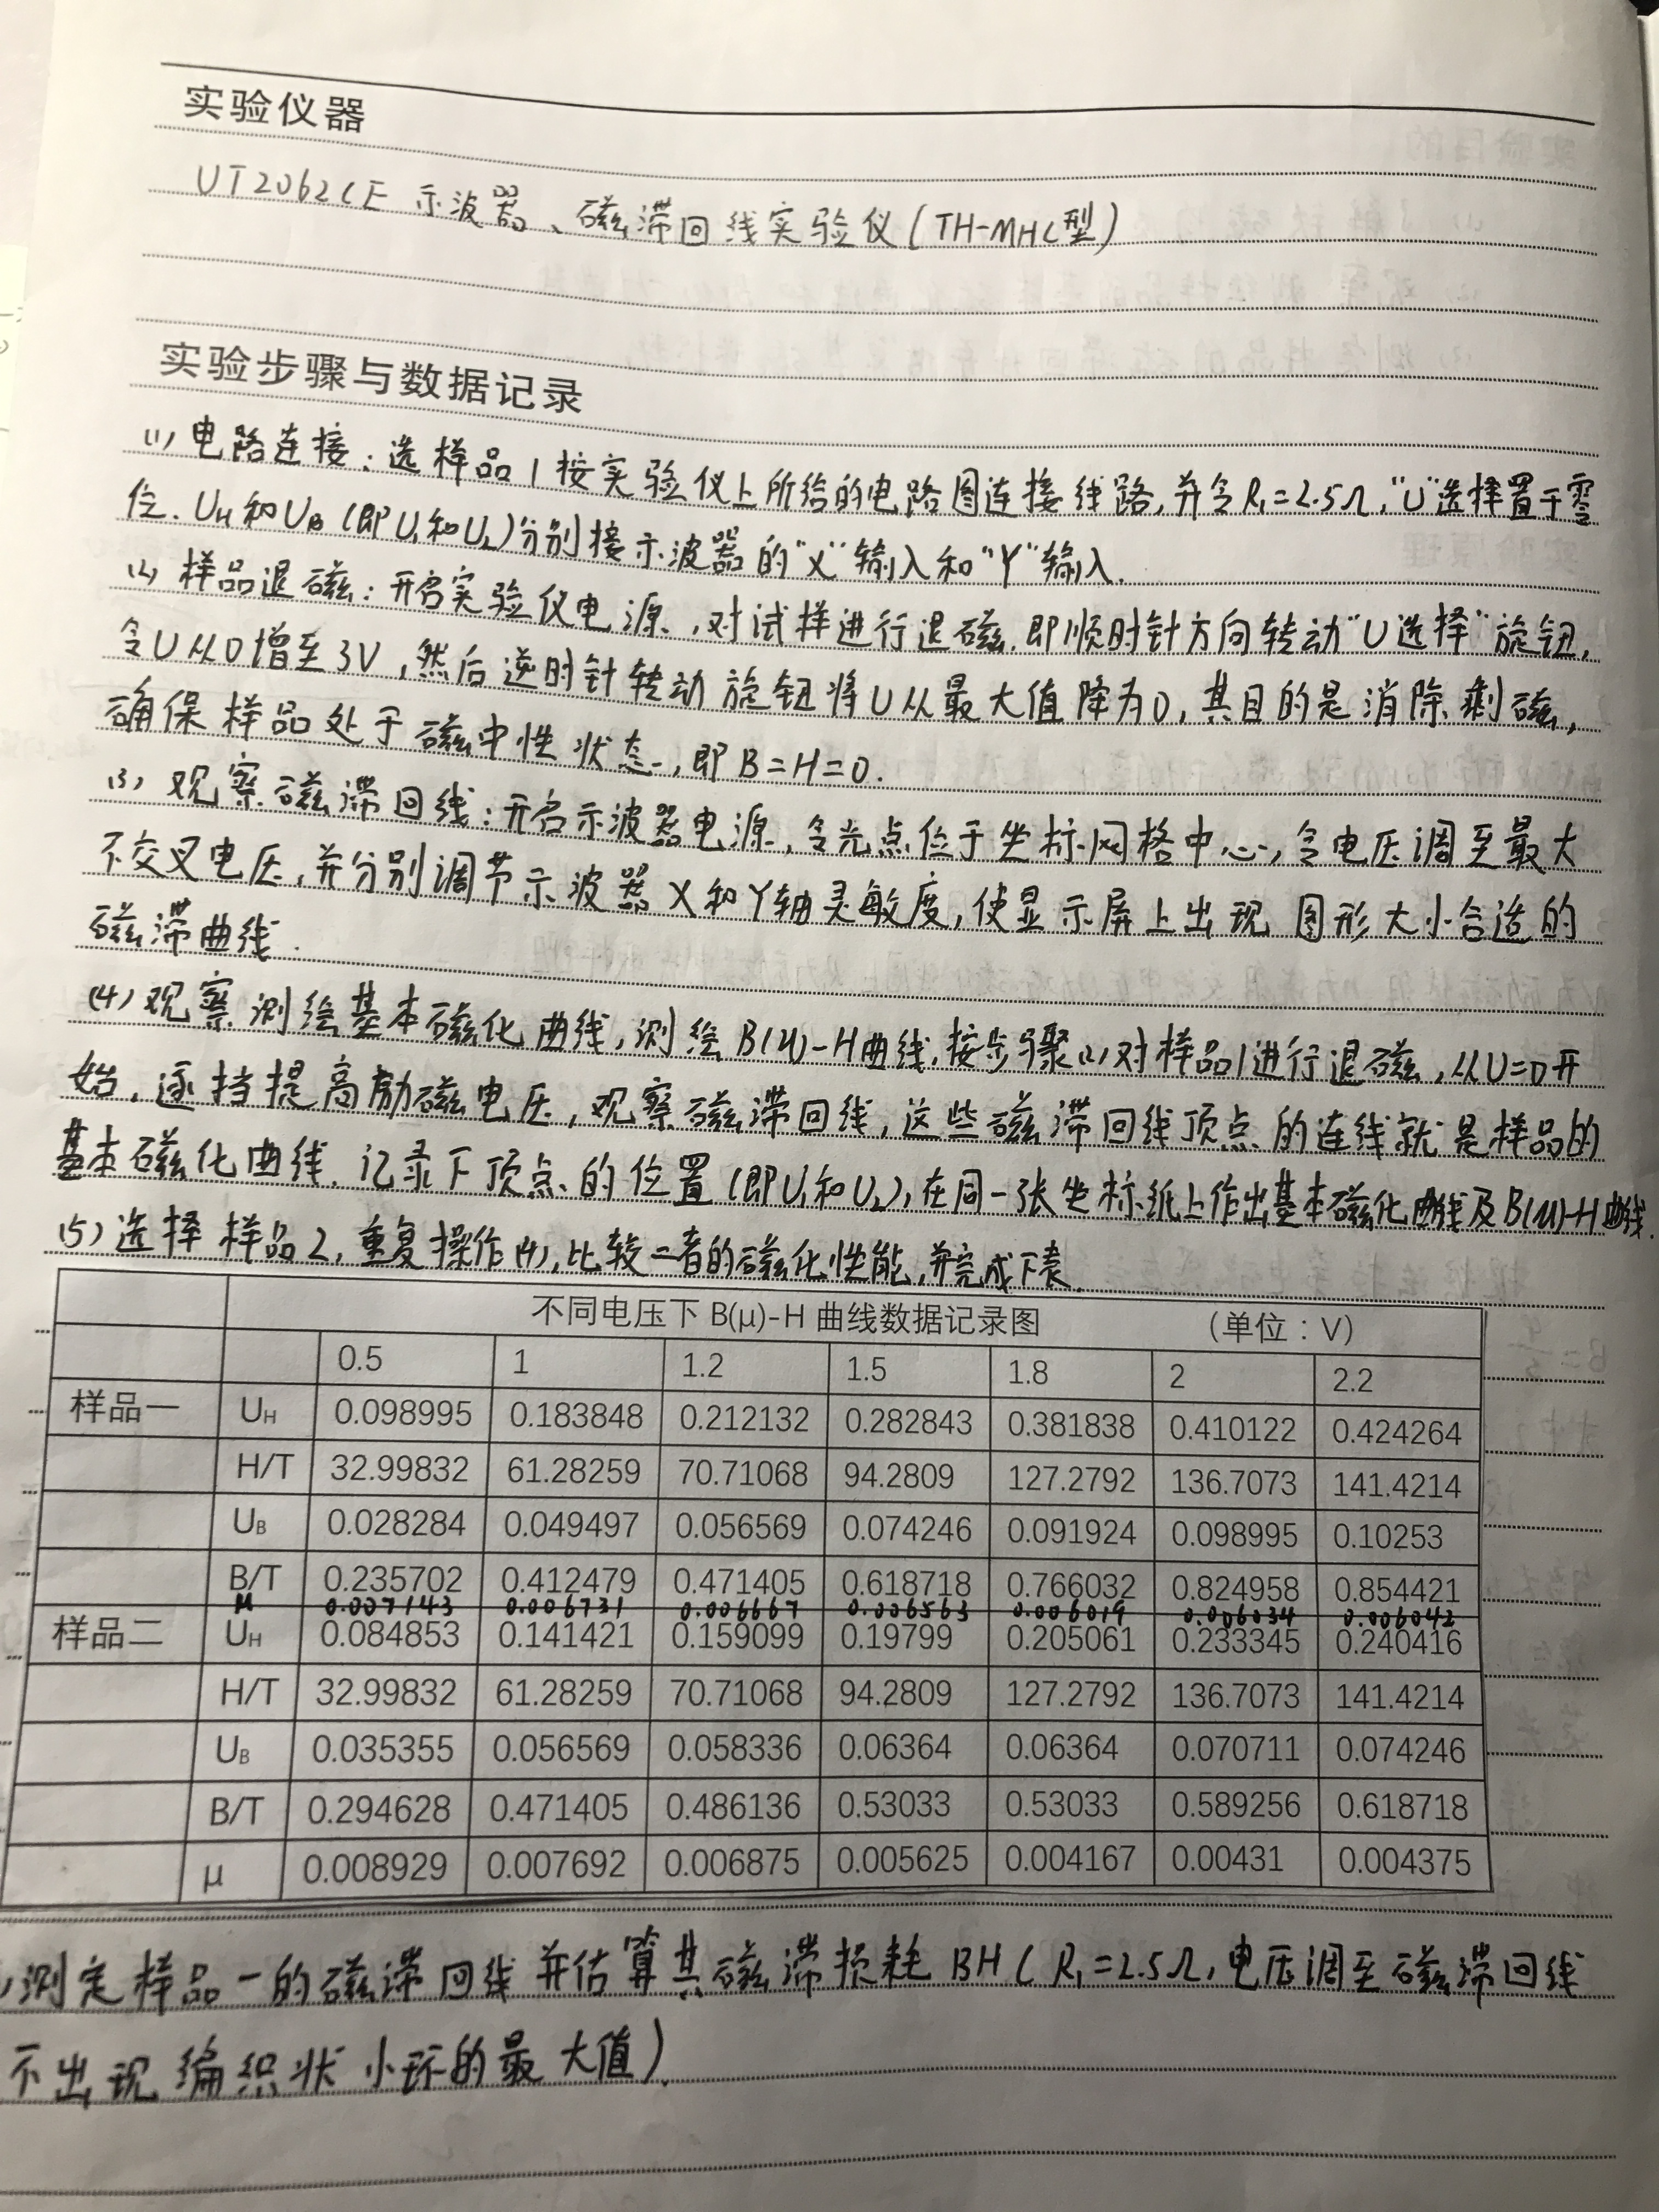 实验仪器
UT2062CE 示波器、磁滞回线实验仪(TH-MHC型)
实验步骤与数据记录
(1) 电路连接:选样品1按实验仪上所给的电路图连接线路,并令R₁=2.5Ω,"U"选择置于零
位.UH和UB(即U₁和U₂)分别接示波器的"X"输入和"Y"输入.
(2) 样品退磁:开启实验仪电源,对试样进行退磁,即顺时针方向转动"U选择"旋钮,
令U从0增至3V,然后逆时针转动旋钮将U从最大值降为0,其目的是消除剩磁,
确保样品处于磁中性状态,即B=H=0.
(3) 观察磁滞回线:开启示波器电源,令光点位于坐标网格中心,令电压调至最大
不交叉电压,并分别调节示波器X和Y轴灵敏度,使显示屏上出现图形大小合适的
磁滞曲线.
(4) 观察测绘基本磁化曲线,测绘B(μ)-H曲线,按步骤(2)对样品1进行退磁,从U=0开
始,逐挡提高励磁电压,观察磁滞回线,这些磁滞回线顶点的连线就是样品的
基本磁化曲线.记录下顶点的位置(即U₁和U₂),在同一张坐标纸上作出基本磁化曲线及B(μ)-H曲线.
(5) 选择样品2,重复操作(4),比较二者的磁化性能,并完成下表.
不同电压下 B(μ)-H 曲线数据记录图 (单位:V)
0.5 1 1.2 1.5 1.8 2 2.2
样品一 UH 0.098995 0.183848 0.212132 0.282843 0.381838 0.410122 0.424264
H/T 32.99832 61.28259 70.71068 94.2809 127.2792 136.7073 141.4214
UB 0.028284 0.049497 0.056569 0.074246 0.091924 0.098995 0.10253
B/T 0.235702 0.412479 0.471405 0.618718 0.766032 0.824958 0.854421
μ 0.007143 0.006731 0.006667 0.006563 0.006019 0.006034 0.006042
样品二 UH 0.084853 0.141421 0.159099 0.19799 0.205061 0.233345 0.240416
H/T 32.99832 61.28259 70.71068 94.2809 127.2792 136.7073 141.4214
UB 0.035355 0.056569 0.058336 0.06364 0.06364 0.070711 0.074246
B/T 0.294628 0.471405 0.486136 0.53033 0.53033 0.589256 0.618718
μ 0.008929 0.007692 0.006875 0.005625 0.004167 0.00431 0.004375
测定样品一的磁滞回线并估算其磁滞损耗BH(R₁=2.5Ω,电压调至磁滞回线
不出现编织状小环的最大值).